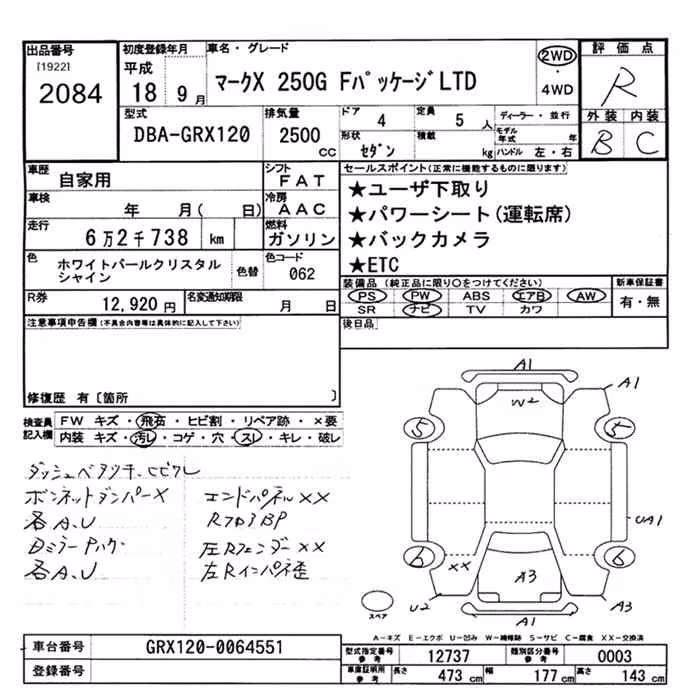 出品番号
[1922]
2084
初度登録年月
平成
18 9 月
車名・グレード
マークX 250G FパッケージLTD
2WD
・
4WD
評価点
R
外装 内装
B C
型式
DBA-GRX120
排気量
2500 CC
ドア 4
定員 5 人
形状 セダン
積載 kg
ディーラー・並行
モデル年式 年
ハンドル 左・右
車歴
自家用
シフト
FAT
車検
年 月( 日)
冷房
AAC
走行
6万2千738 km
燃料
ガソリン
色
ホワイトパールクリスタル
シャイン
色替
色コード
062
R券
12,920 円
名変通知期限
月 日
セールスポイント(正常に機能するものに限ります)
★ユーザ下取り
★パワーシート(運転席)
★バックカメラ
★ETC
装備品(純正品に限り○をつけてください)
PS PW ABS エアB AW
SR ナビ TV カワ
新車保証書
有・無
後日品
注意事項申告欄(不具合内容等は具体的に記入して下さい)
修復歴 有〔箇所 〕
検査員
記入欄
FW キズ・飛石・ヒビ割・リペア跡・×要
内装 キズ・汚レ・コゲ・穴・スレ・キレ・破レ
ボンネットダンパーX
各A.U
各A.U
エンドパネルXX
左RフェンダーXX
左Rインパネ歪
A1
W2
A1
5
5
UA1
6
6
XX
A3
U2
A1
A3
スペア
A-キズ E-エクボ U-凹み W-補修跡 S-サビ C-腐食 XX-交換済
車台番号
GRX120-0064551
登録番号
型式指定番号
参考
12737
類別区分番号
参考
0003
車庫証明用
参考
長さ 473 cm
幅 177 cm
高さ 143 cm